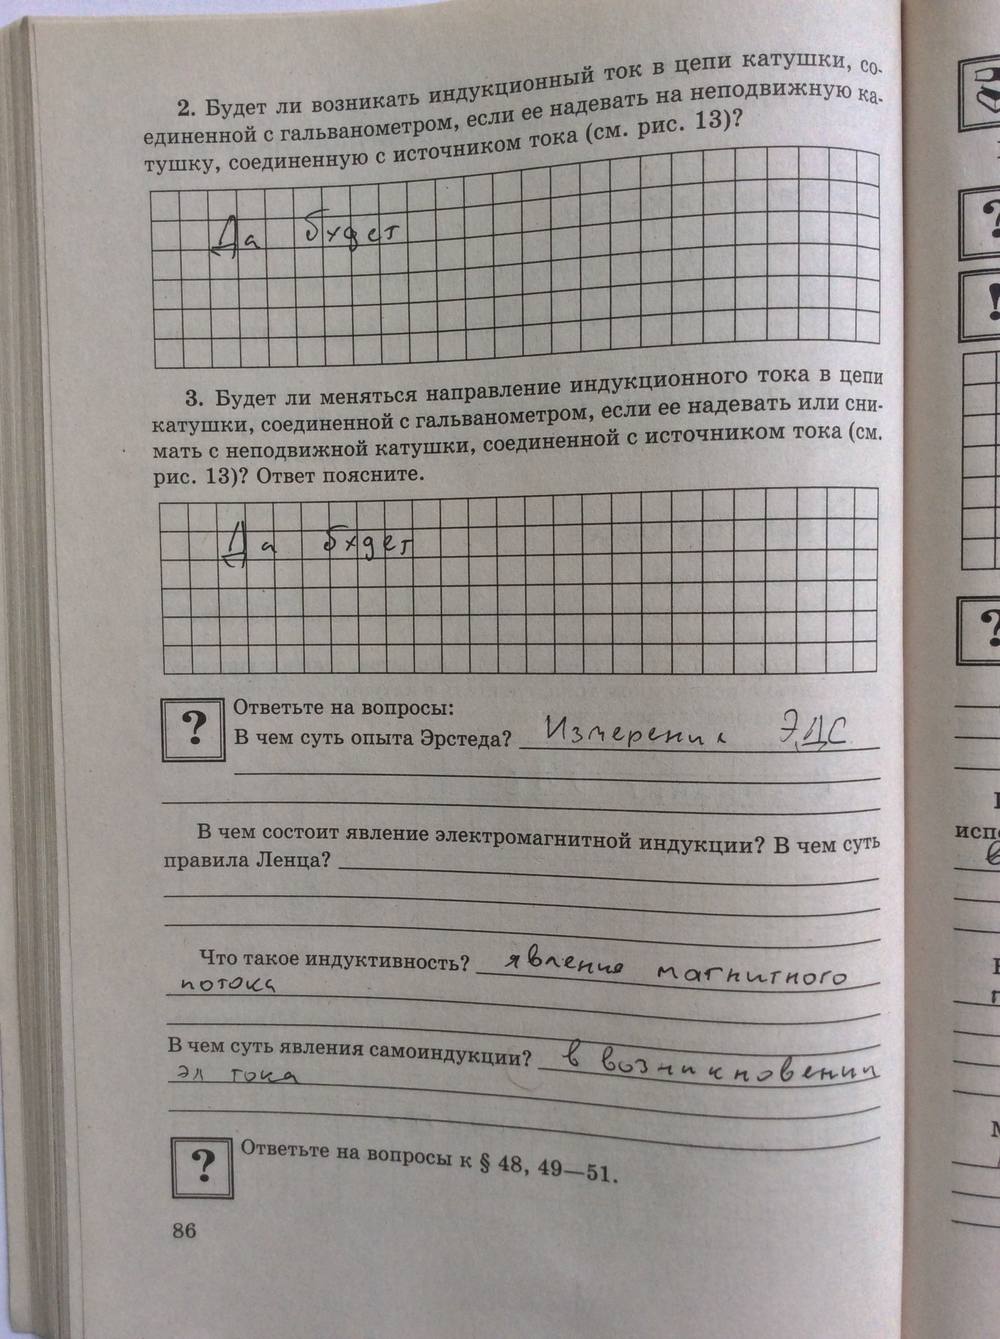 2. Будет ли возникать индукционный ток в цепи катушки, со-
единенной с гальванометром, если ее надевать на неподвижную ка-
тушку, соединенную с источником тока (см. рис. 13)?
Да будет
3. Будет ли меняться направление индукционного тока в цепи
катушки, соединенной с гальванометром, если ее надевать или сни-
мать с неподвижной катушки, соединенной с источником тока (см.
рис. 13)? Ответ поясните.
Да будет
? Ответьте на вопросы:
В чем суть опыта Эрстеда? Измерения ЭДС
В чем состоит явление электромагнитной индукции? В чем суть
правила Ленца?
Что такое индуктивность? явление магнитного
потока
В чем суть явления самоиндукции? в возникновении
эл тока
? Ответьте на вопросы к § 48, 49—51.
86
?
!
?
исп